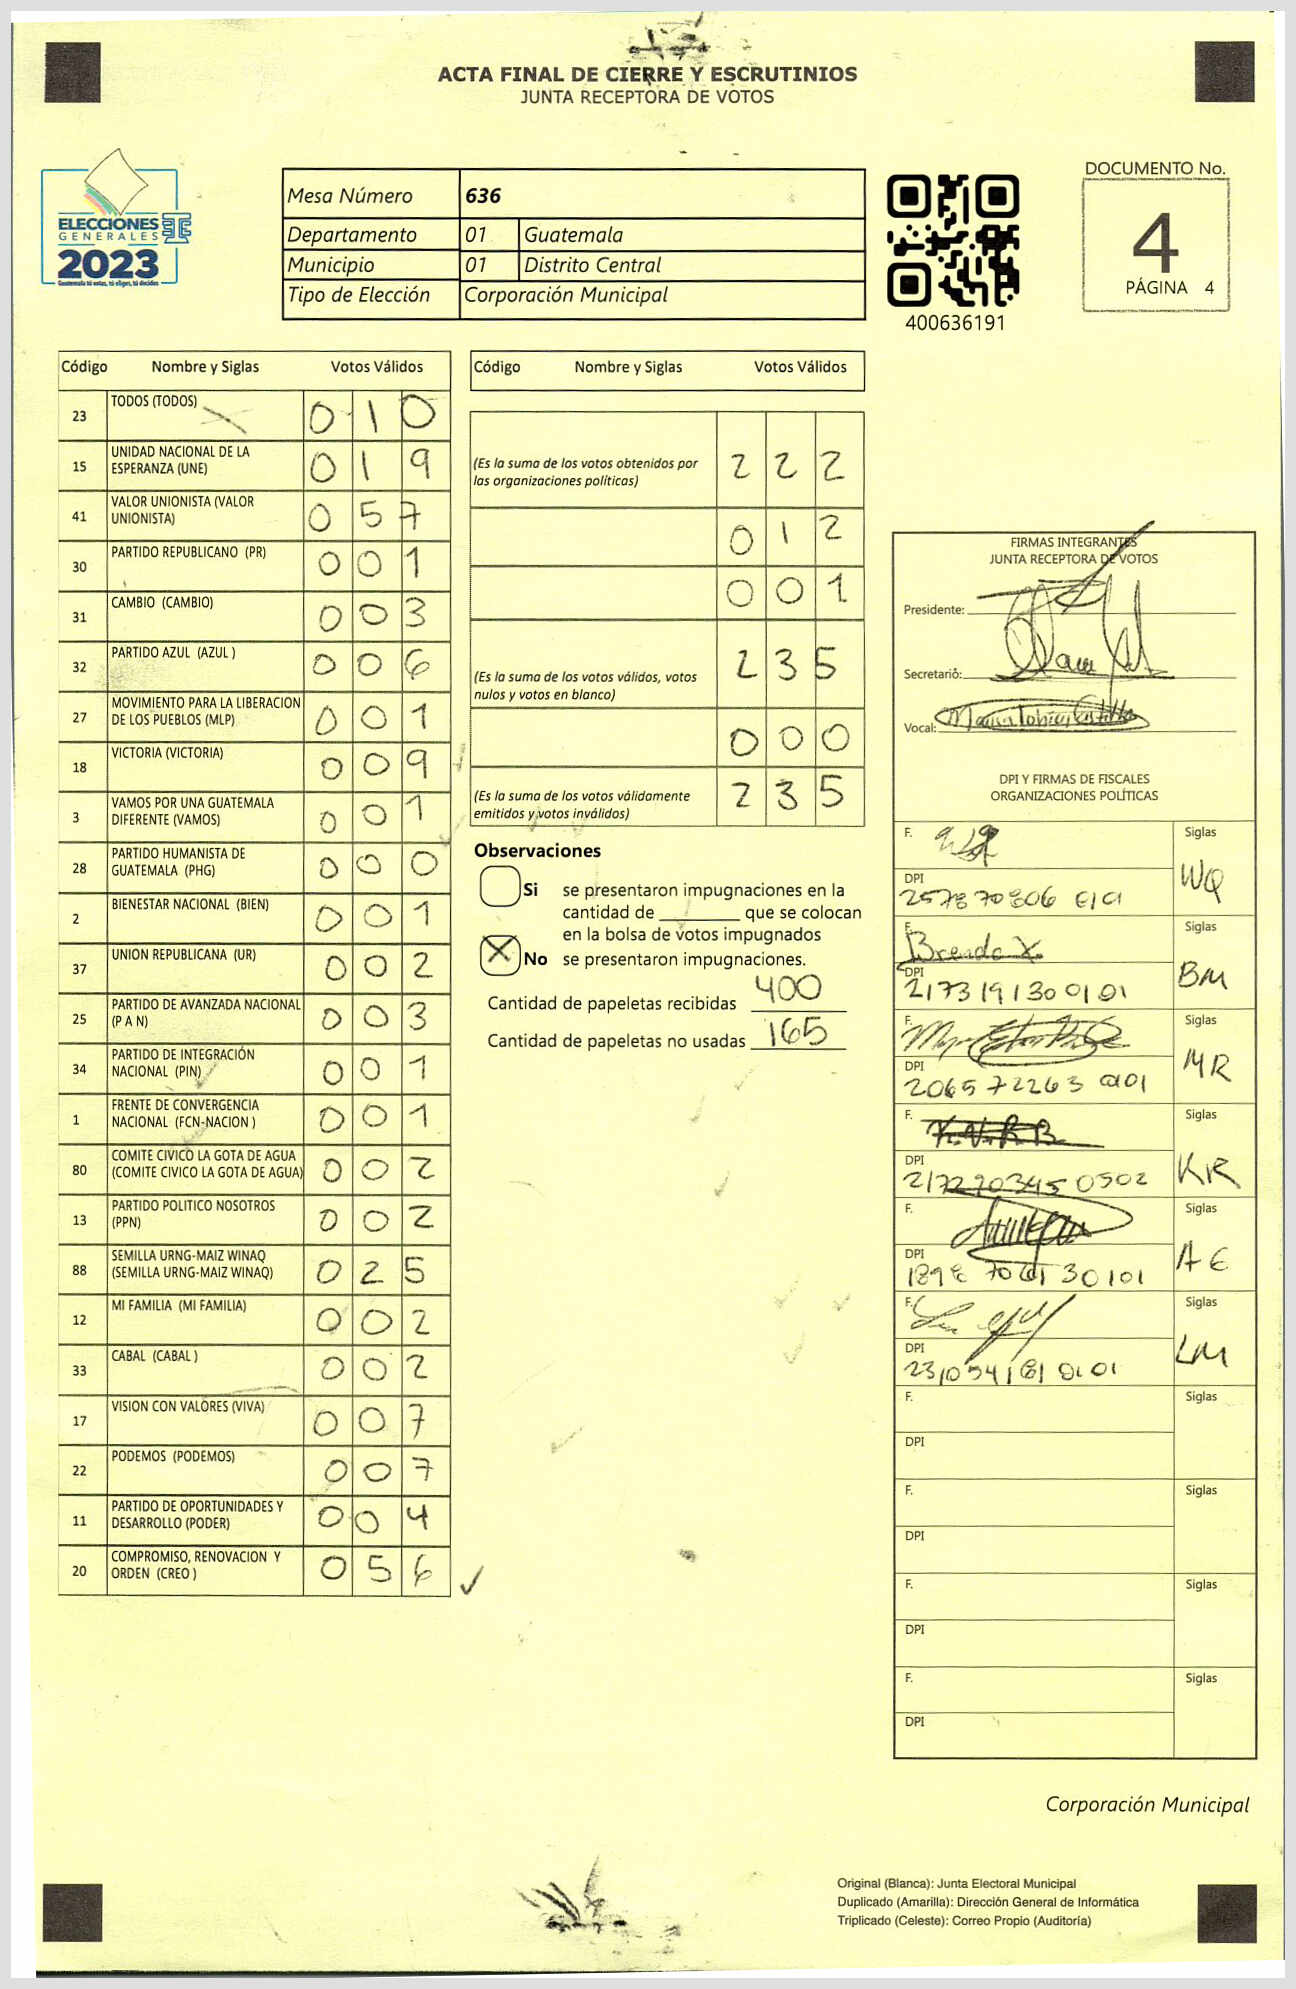 ACTA FINAL DE CIERRE Y ESCRUTINIOS
JUNTA RECEPTORA DE VOTOS
ELECCIONES
GENERALES
2023
Guatemala tú votas, tú eliges, tú decides
Mesa Número 636
Departamento 01 Guatemala
Municipio 01 Distrito Central
Tipo de Elección Corporación Municipal
400636191
DOCUMENTO No.
4
PÁGINA 4
Código Nombre y Siglas Votos Válidos
23 TODOS (TODOS) 0 1 0
15 UNIDAD NACIONAL DE LA
ESPERANZA (UNE) 0 1 9
41 VALOR UNIONISTA (VALOR
UNIONISTA) 0 5 7
30 PARTIDO REPUBLICANO (PR) 0 0 1
31 CAMBIO (CAMBIO) 0 0 3
32 PARTIDO AZUL (AZUL ) 0 0 6
27 MOVIMIENTO PARA LA LIBERACION
DE LOS PUEBLOS (MLP) 0 0 1
18 VICTORIA (VICTORIA) 0 0 9
3 VAMOS POR UNA GUATEMALA
DIFERENTE (VAMOS) 0 0 1
28 PARTIDO HUMANISTA DE
GUATEMALA (PHG) 0 0 0
2 BIENESTAR NACIONAL (BIEN) 0 0 1
37 UNION REPUBLICANA (UR) 0 0 2
25 PARTIDO DE AVANZADA NACIONAL
(P A N) 0 0 3
34 PARTIDO DE INTEGRACIÓN
NACIONAL (PIN) 0 0 1
1 FRENTE DE CONVERGENCIA
NACIONAL (FCN-NACION ) 0 0 1
80 COMITE CIVICO LA GOTA DE AGUA
(COMITE CIVICO LA GOTA DE AGUA) 0 0 2
13 PARTIDO POLITICO NOSOTROS
(PPN) 0 0 2
88 SEMILLA URNG-MAIZ WINAQ
(SEMILLA URNG-MAIZ WINAQ) 0 2 5
12 MI FAMILIA (MI FAMILIA) 0 0 2
33 CABAL (CABAL ) 0 0 2
17 VISION CON VALORES (VIVA) 0 0 7
22 PODEMOS (PODEMOS) 0 0 7
11 PARTIDO DE OPORTUNIDADES Y
DESARROLLO (PODER) 0 0 4
20 COMPROMISO, RENOVACION Y
ORDEN (CREO ) 0 5 6
Código Nombre y Siglas Votos Válidos
(Es la suma de los votos obtenidos por
las organizaciones políticas) 2 2 2
0 1 2
0 0 1
(Es la suma de los votos válidos, votos
nulos y votos en blanco) 2 3 5
0 0 0
(Es la suma de los votos válidamente
emitidos y votos inválidos) 2 3 5
Observaciones
Si se presentaron impugnaciones en la
cantidad de ________ que se colocan
en la bolsa de votos impugnados
X No se presentaron impugnaciones.
Cantidad de papeletas recibidas 400
Cantidad de papeletas no usadas 165
FIRMAS INTEGRANTES
JUNTA RECEPTORA DE VOTOS
Presidente:
Secretario:
Vocal:
DPI Y FIRMAS DE FISCALES
ORGANIZACIONES POLÍTICAS
F. Siglas
DPI WQ
F. Brenda X. Siglas
DPI BM
2173191300101
F. Siglas
DPI MR
2065 72263 0101
F. Siglas
DPI KR
2172703450502
F. Siglas
DPI AE
F. Siglas
DPI LM
F. Siglas
DPI
F. Siglas
DPI
F. Siglas
DPI
F. Siglas
DPI
Corporación Municipal
Original (Blanca): Junta Electoral Municipal
Duplicado (Amarilla): Dirección General de Informática
Triplicado (Celeste): Correo Propio (Auditoría)